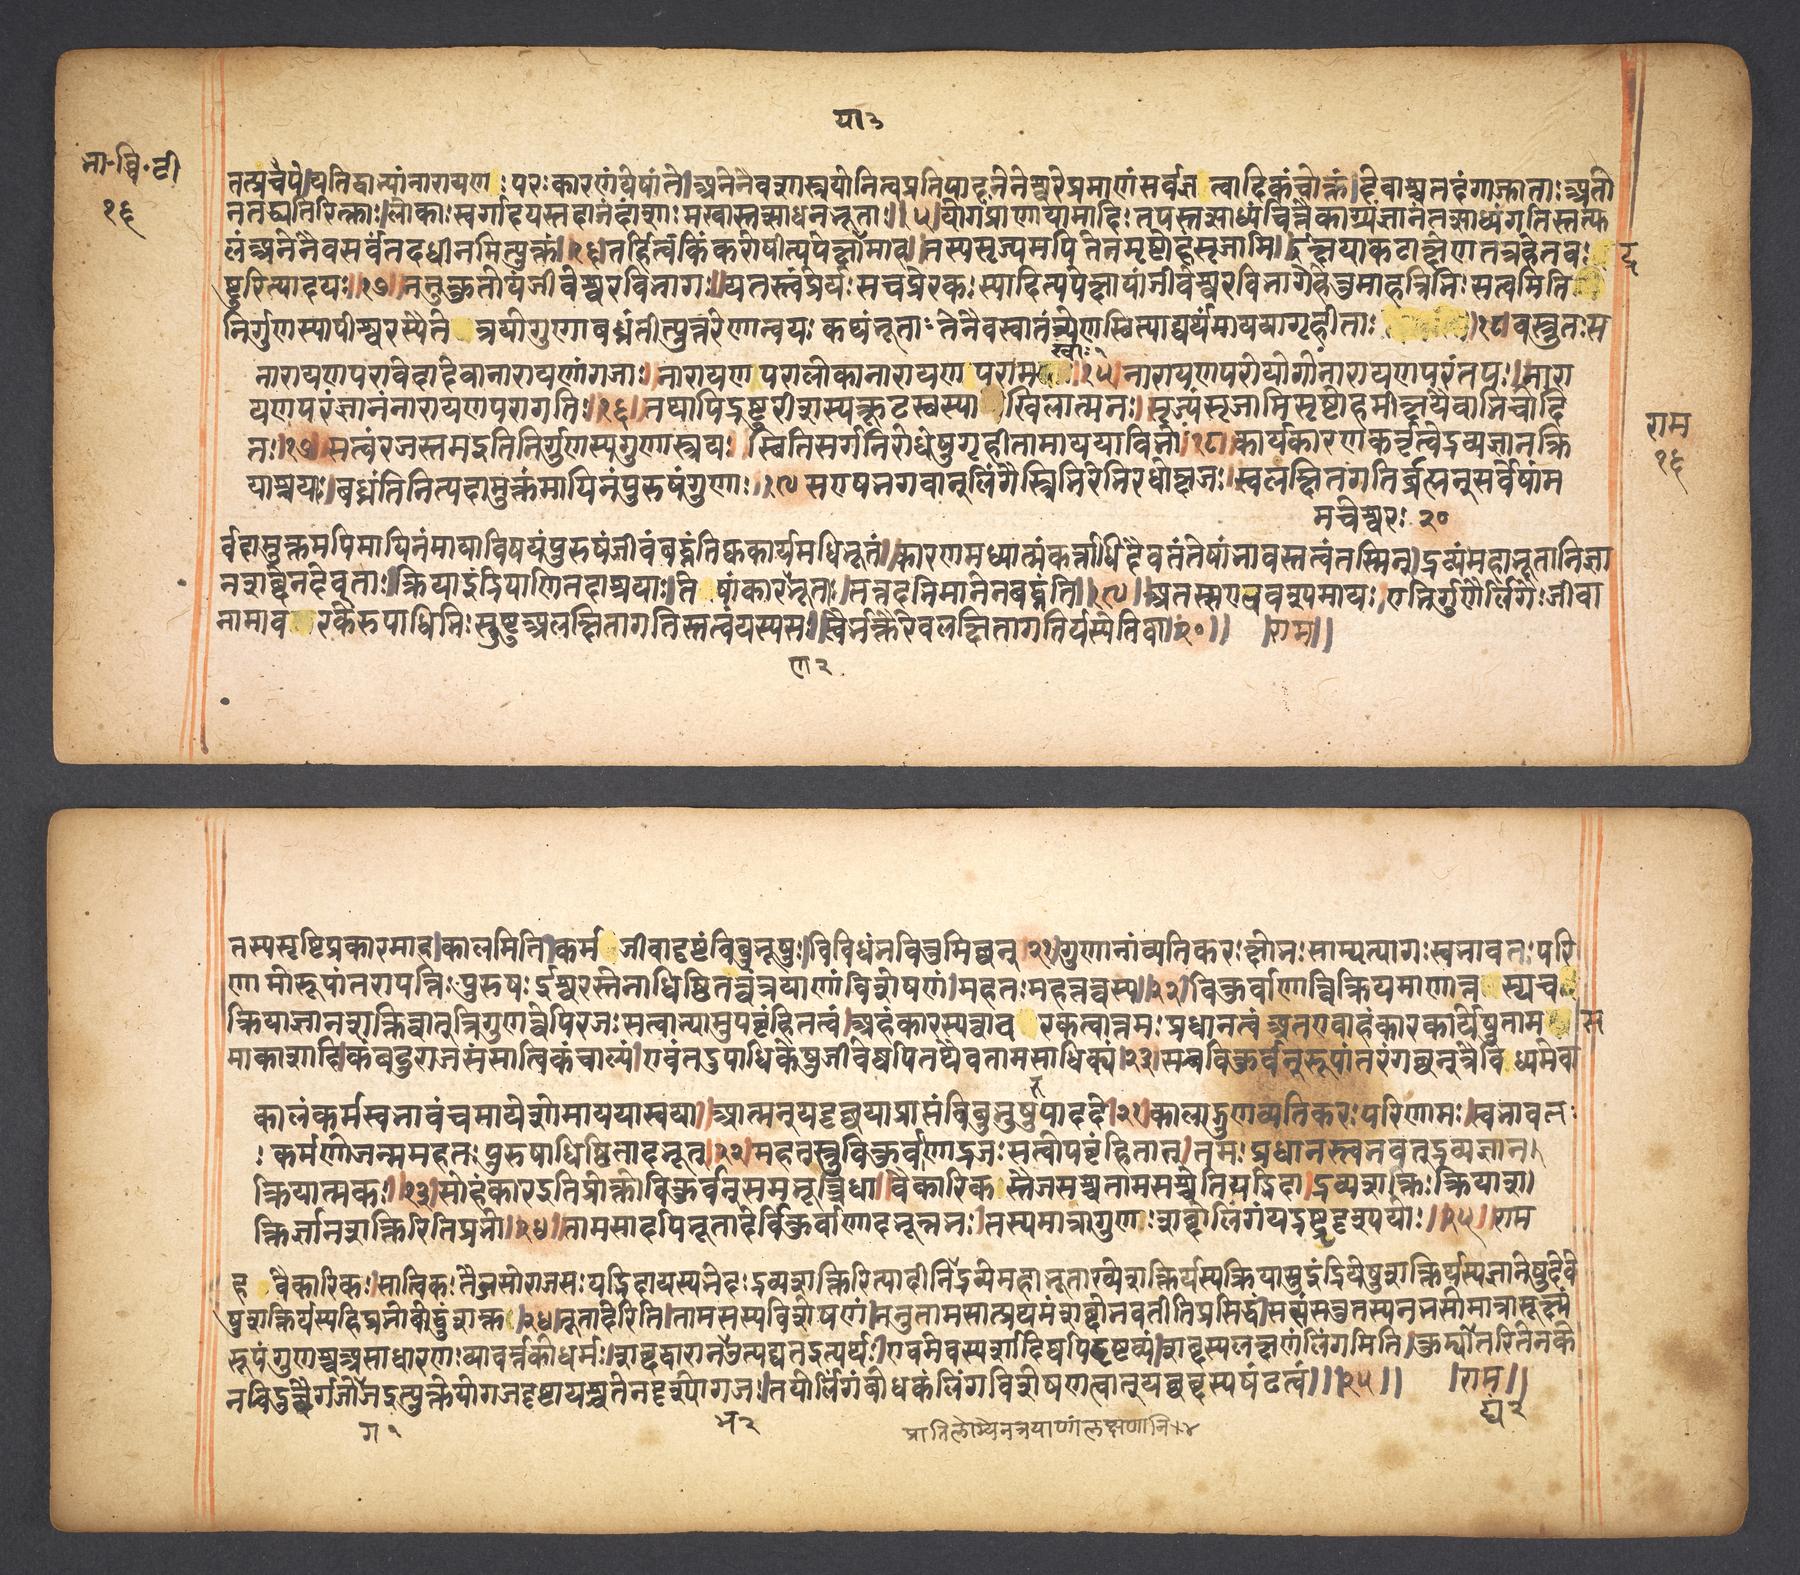 या३
भा॰द्वि॰टी
१६
तत्प्रपंचे यतिद्वाभ्यां नारायणः परः कारणं येषां ते अनेनैव शास्त्रयोनित्वप्रतिपादनेनेश्वरे प्रमाणं सर्वज्ञत्वादिकं चोक्तं देवाश्च तदंगाज्जाताः अतो
न तद्व्यतिरिक्ताः लोकाः स्वर्गादयस्तदानंदांशाः मखास्तत्साधनभूताः १५ योगः प्राणायामादिः तपस्तत्साध्यं चित्तैकाग्र्यं ज्ञानं तत्साध्यं गतिस्तत्फ
लं अनेनैव सर्वं तदधीनमित्युक्तं १६ तर्हि त्वं किं करोषीत्यपेक्षायामाह तस्य सृज्यमपि तेन सृष्टोहं सृजामि ईक्षया कटाक्षेण तत्र हेतवः
द्र
ष्टुरित्यादयः १७ ननु कुतोयं जीवेश्वरविभागः यतस्त्वं प्रेर्यः स च प्रेरकः स्यादित्यपेक्षायां जीवेश्वरविभागे हेतुमाह त्रिभिः सत्वमिति
निर्गुणस्यापीश्वरस्यैते त्रयो गुणा बध्नंतीत्युत्तरेणान्वयः कथंभूताः तेनैव स्वातंत्र्येण स्थित्याद्यर्थं मायया गृहीताः १८ वस्तुतः स
नारायणपरा वेदा देवा नारायणांगजाः नारायणपरा लोका नारायणपरा म १५ नारायणपरो योगो नारायणपरं तपः नारा
खाः २
यणपरं ज्ञानं नारायणपरा गतिः १६ तस्यापि द्रष्टुरीशस्य कूटस्थस्याखिलात्मनः सृज्यं सृजामि सृष्टोहमीक्षयैवाभिचोदि
राम
तः १७ सत्वं रजस्तम इति निर्गुणस्य गुणास्त्रयः स्थितिसर्गनिरोधेषु गृहीता मायया विभोः १८ कार्यकारणकर्तृत्वे द्रव्यज्ञानक्रि
१६
याश्रयाः बध्नंति नित्यदा मुक्तं मायिनं पुरुषं गुणाः १९ स एष भगवान् लिंगैस्त्रिभिरेभिरधोक्षजः स्वलक्षितगतिर्ब्रह्मन् सर्वेषां म
म चेश्वरः २०
र्वदा मुक्तमपि मायिनं मायाविषयं पुरुषं जीवं बध्नंति क्व कार्यमधिभूतं कारणमध्यात्मं कर्त्ताधिदैवतं तेषां भावस्तत्वं तस्मिन् द्रव्यं महाभूतानि ज्ञा
नशब्देन देवताः क्रिया इंद्रियाणि तदाश्रयाः तेषां कारणभूताः तत्तदभिमानेन बध्नंति १९ अतस्स एव वश्यमायः एभिर्गुणैर्लिंगैः जीवा
नामावरकैरुपाधिभिः सुष्टु अलक्षिता गतिस्तत्वं यस्य सः स्वैर्भक्तैरेव लक्षिता गतिर्यस्येति वा २० राम
ण२
तस्य सृष्टिप्रकारमाह कालमिति कर्म जीवादृष्टं विबुभूषुः विविधं भवितुमिच्छन् २१ गुणानां व्यतिकरः क्षोभः साम्यत्यागः स्वभावतः परि
णामो रूपांतरापत्तिः पुरुषः ईश्वरस्तेनाधिष्ठितत्वं त्रयाणां विशेषणं महतः महत्तत्वस्य २२ विकुर्वाणाद्विक्रियमाणात्तस्य च
क्रियाज्ञानशक्तित्वात् त्रिगुणत्वेपि रजः सत्वाभ्यामुपबृंहितत्वं अहंकारस्य त्वावरकत्वात्तमःप्रधानत्वं अत एवाहंकारकार्येषु ताम
स
माकाशादिकं बहु राजसं सात्विकं चाल्पं एवं तदुपाधिकेषु जीवेष्वपि तथैव तामसाधिक्यं २३ स च विकुर्वन् रूपांतरं गच्छन् त्रैविध्यमेवा
कालं कर्म स्वभावं च मायेशो मायया स्वया आत्मन् यदृच्छया प्राप्तं विबुभूषुरुपाददे २१ कालाद्गुणव्यतिकरः परिणामः स्वभावतः
कर्मणो जन्म महतः पुरुषाधिष्ठितादभूत् २२ महतस्तु विकुर्वाणाद्रजःसत्वोपबृंहितात् तमःप्रधानस्त्वभवत् द्रव्यज्ञान
क्रियात्मकः २३ सोहंकार इति प्रोक्तो विकुर्वन् समभूत्त्रिधा वैकारिकस्तैजसश्च तामसश्चेति यद्भिदा द्रव्यशक्तिः क्रियाश
क्तिर्ज्ञानशक्तिरिति प्रभो २४ तामसादपि भूतादेर्विकुर्वाणादभून्नभः तस्य मात्रा गुणः शब्दो लिंगं यद्द्रष्टृदृश्ययोः २५ राम
ह वैकारिकः सात्विकः तैजसो राजसः यद्भिदा यस्य भेदः द्रव्यशक्तिरित्यादीनि द्रव्ये महाभूताख्ये शक्तिर्यस्य क्रियासु इंद्रियेषु शक्तिर्यस्य ज्ञानेषु देवे
षु शक्तिर्यस्य हि प्रभो बोद्धुं शक्त २४ भूतादेरिति तामसस्य विशेषणं ननु तामसात्प्रथमं शब्दो भवतीति प्रसिद्धं सत्यं स तु तस्य नभसो मात्रा सूक्ष्मं
रूपं गुणश्च असाधारणः व्यावर्त्तको धर्मः शब्दद्वारा नभ उत्पद्यत इत्यर्थः एवमेव स्पर्शादिष्वपि द्रष्टव्यं शब्दस्य लक्षणं लिंगमिति कुड्यांतरितेन के
ग१
भ२
प्रातिलोम्येन त्रयाणां लक्षणानि २४
द्य२